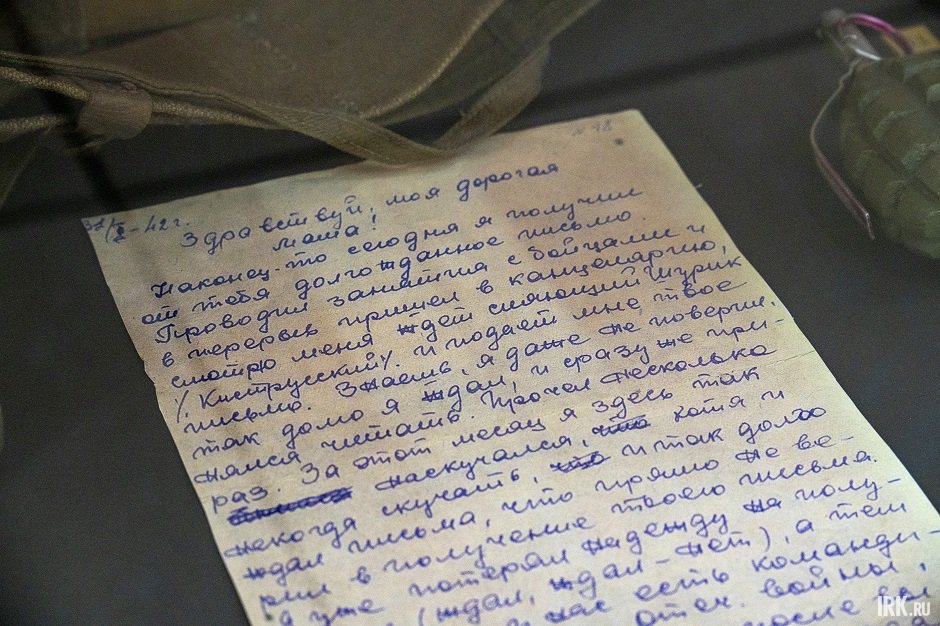 № 18
31/X-42 г.
Здравствуй, моя дорогая
мама!
Наконец-то сегодня я получил
от тебя долгожданное письмо.
Проводил занятия с бойцами и
в перерыв пришел в канцелярию,
смотрю меня ждет сияющий Шурик
/. Киструсский/. и подает мне твое
письмо. Знаешь, я даже не поверил,
так долго я ждал, и сразу же при-
нялся читать. Прочел несколько
раз. За этот месяц я здесь так
наскучался, что хотя и
некогда скучать, что и так долго
ждал письма, что прямо не ве-
рил в получение твоего письма.
а уже потерял надежду на полу-
(ждал, ждал - нет), а тем
нас есть команди-
отеч. войны,
после
IRK.RU